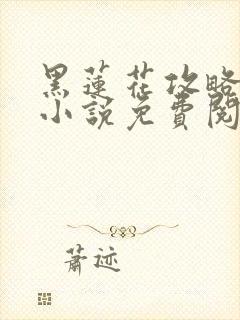 黑蓮花攻略
小說免費閱
蕭迹